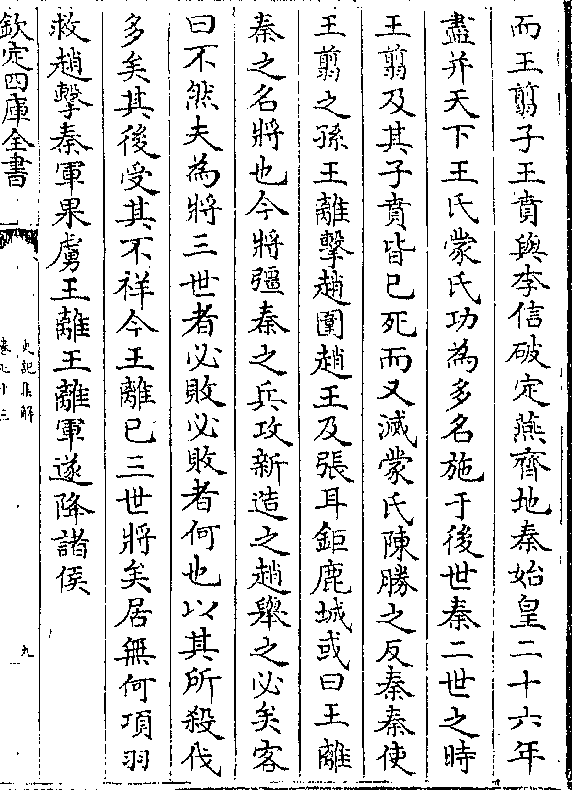 而王翦子王賁與李信破定燕齊地秦始皇二十六年
盡并天下王氏蒙氏功為多名施于後世秦二世之時
王翦及其子賁皆已死而又滅蒙氏陳勝之反秦秦使
王翦之孫王離擊趙圍趙王及張耳鉅鹿城或曰王離
秦之名將也今將彊秦之兵攻新造之趙舉之必矣客
曰不然夫為將三世者必敗必敗者何也以其所殺伐
多矣其後受其不祥今王離已三世將矣居無何項羽
救趙擊秦軍果虜王離王離軍遂降諸侯
欽定四庫全書
史記集解
卷七十三
九